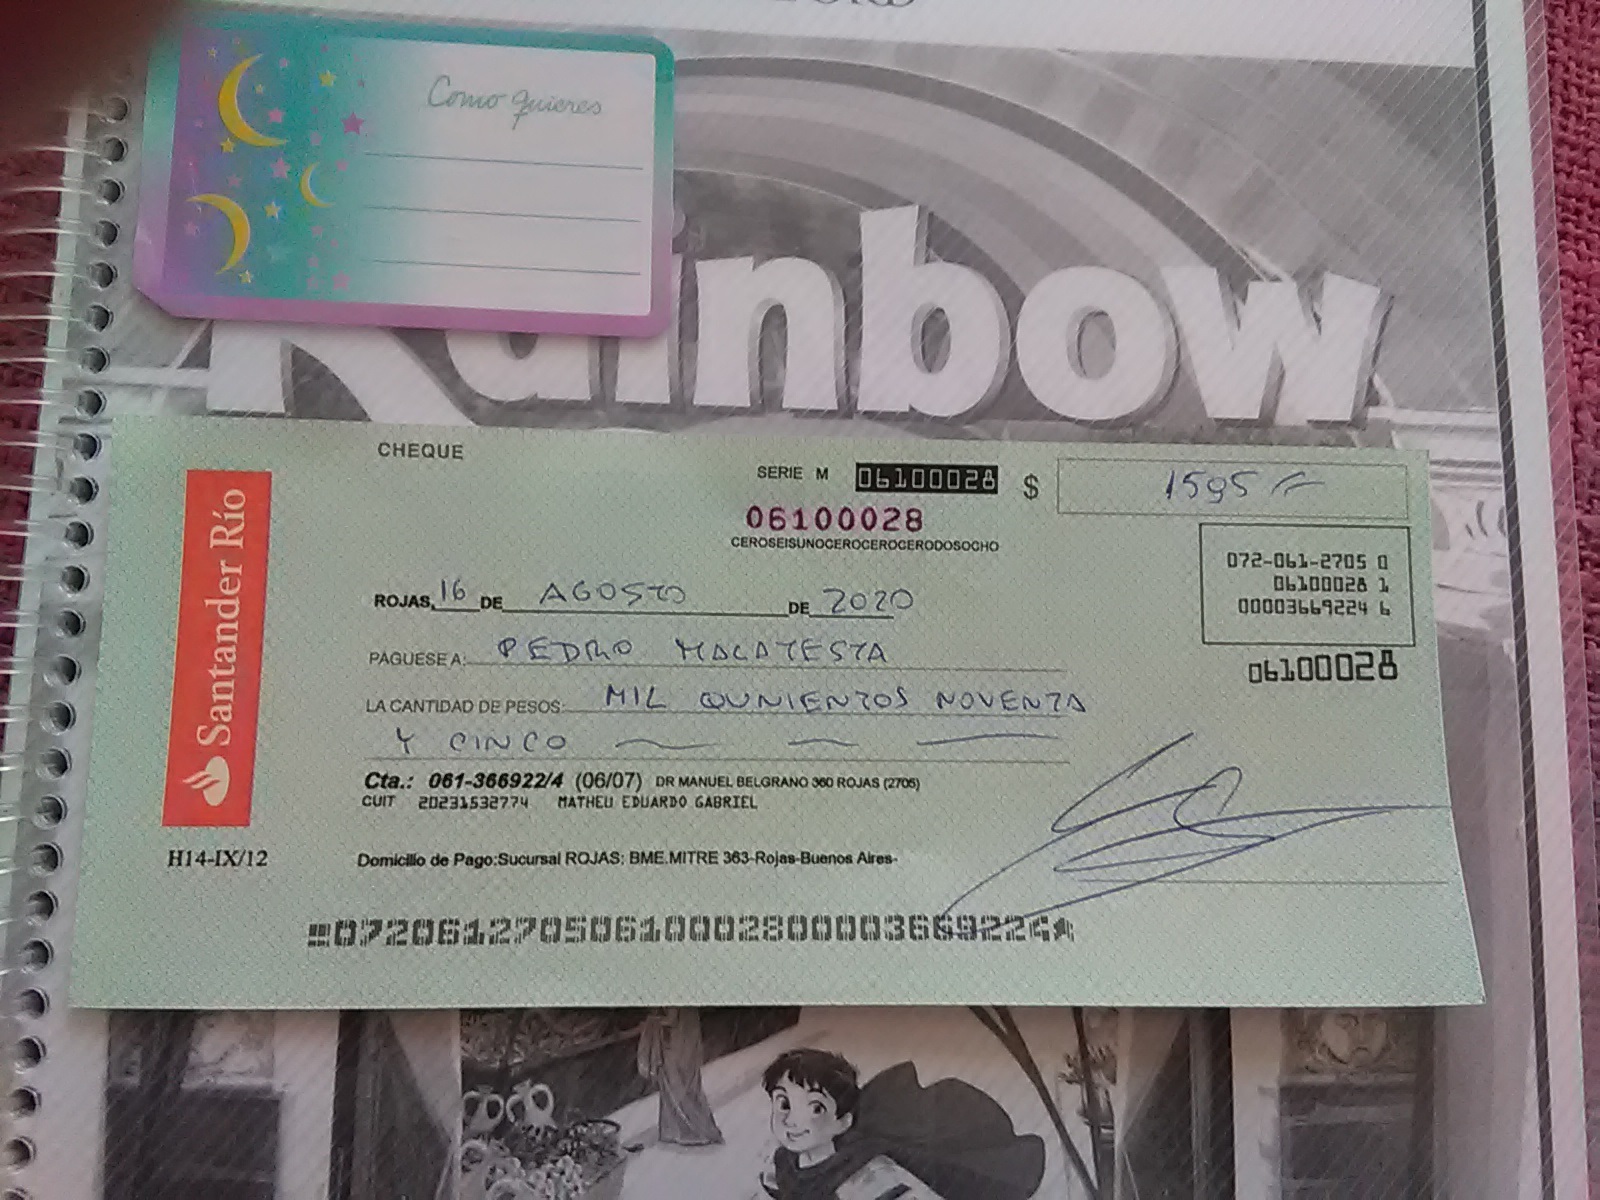 Como quieres
Rainbow
CHEQUE
SERIE M 06100028 $ 1595
06100028
CEROSEISUNOCEROCEROCERODOSOCHO
072-061-2705 0
06100028 1
00003669224 6
06100028
Santander Río
ROJAS, 16 DE AGOSTO DE 2020
PAGUESE A: PEDRO MALATESTA
LA CANTIDAD DE PESOS: MIL QUNIENTOS NOVENTA
Y CINCO
Cta.: 061-366922/4 (06/07) DR MANUEL BELGRANO 360 ROJAS (2705)
CUIT 20231532774 MATHEU EDUARDO GABRIEL
H14-IX/12
Domicilio de Pago:Sucursal ROJAS: BME.MITRE 363-Rojas-Buenos Aires-